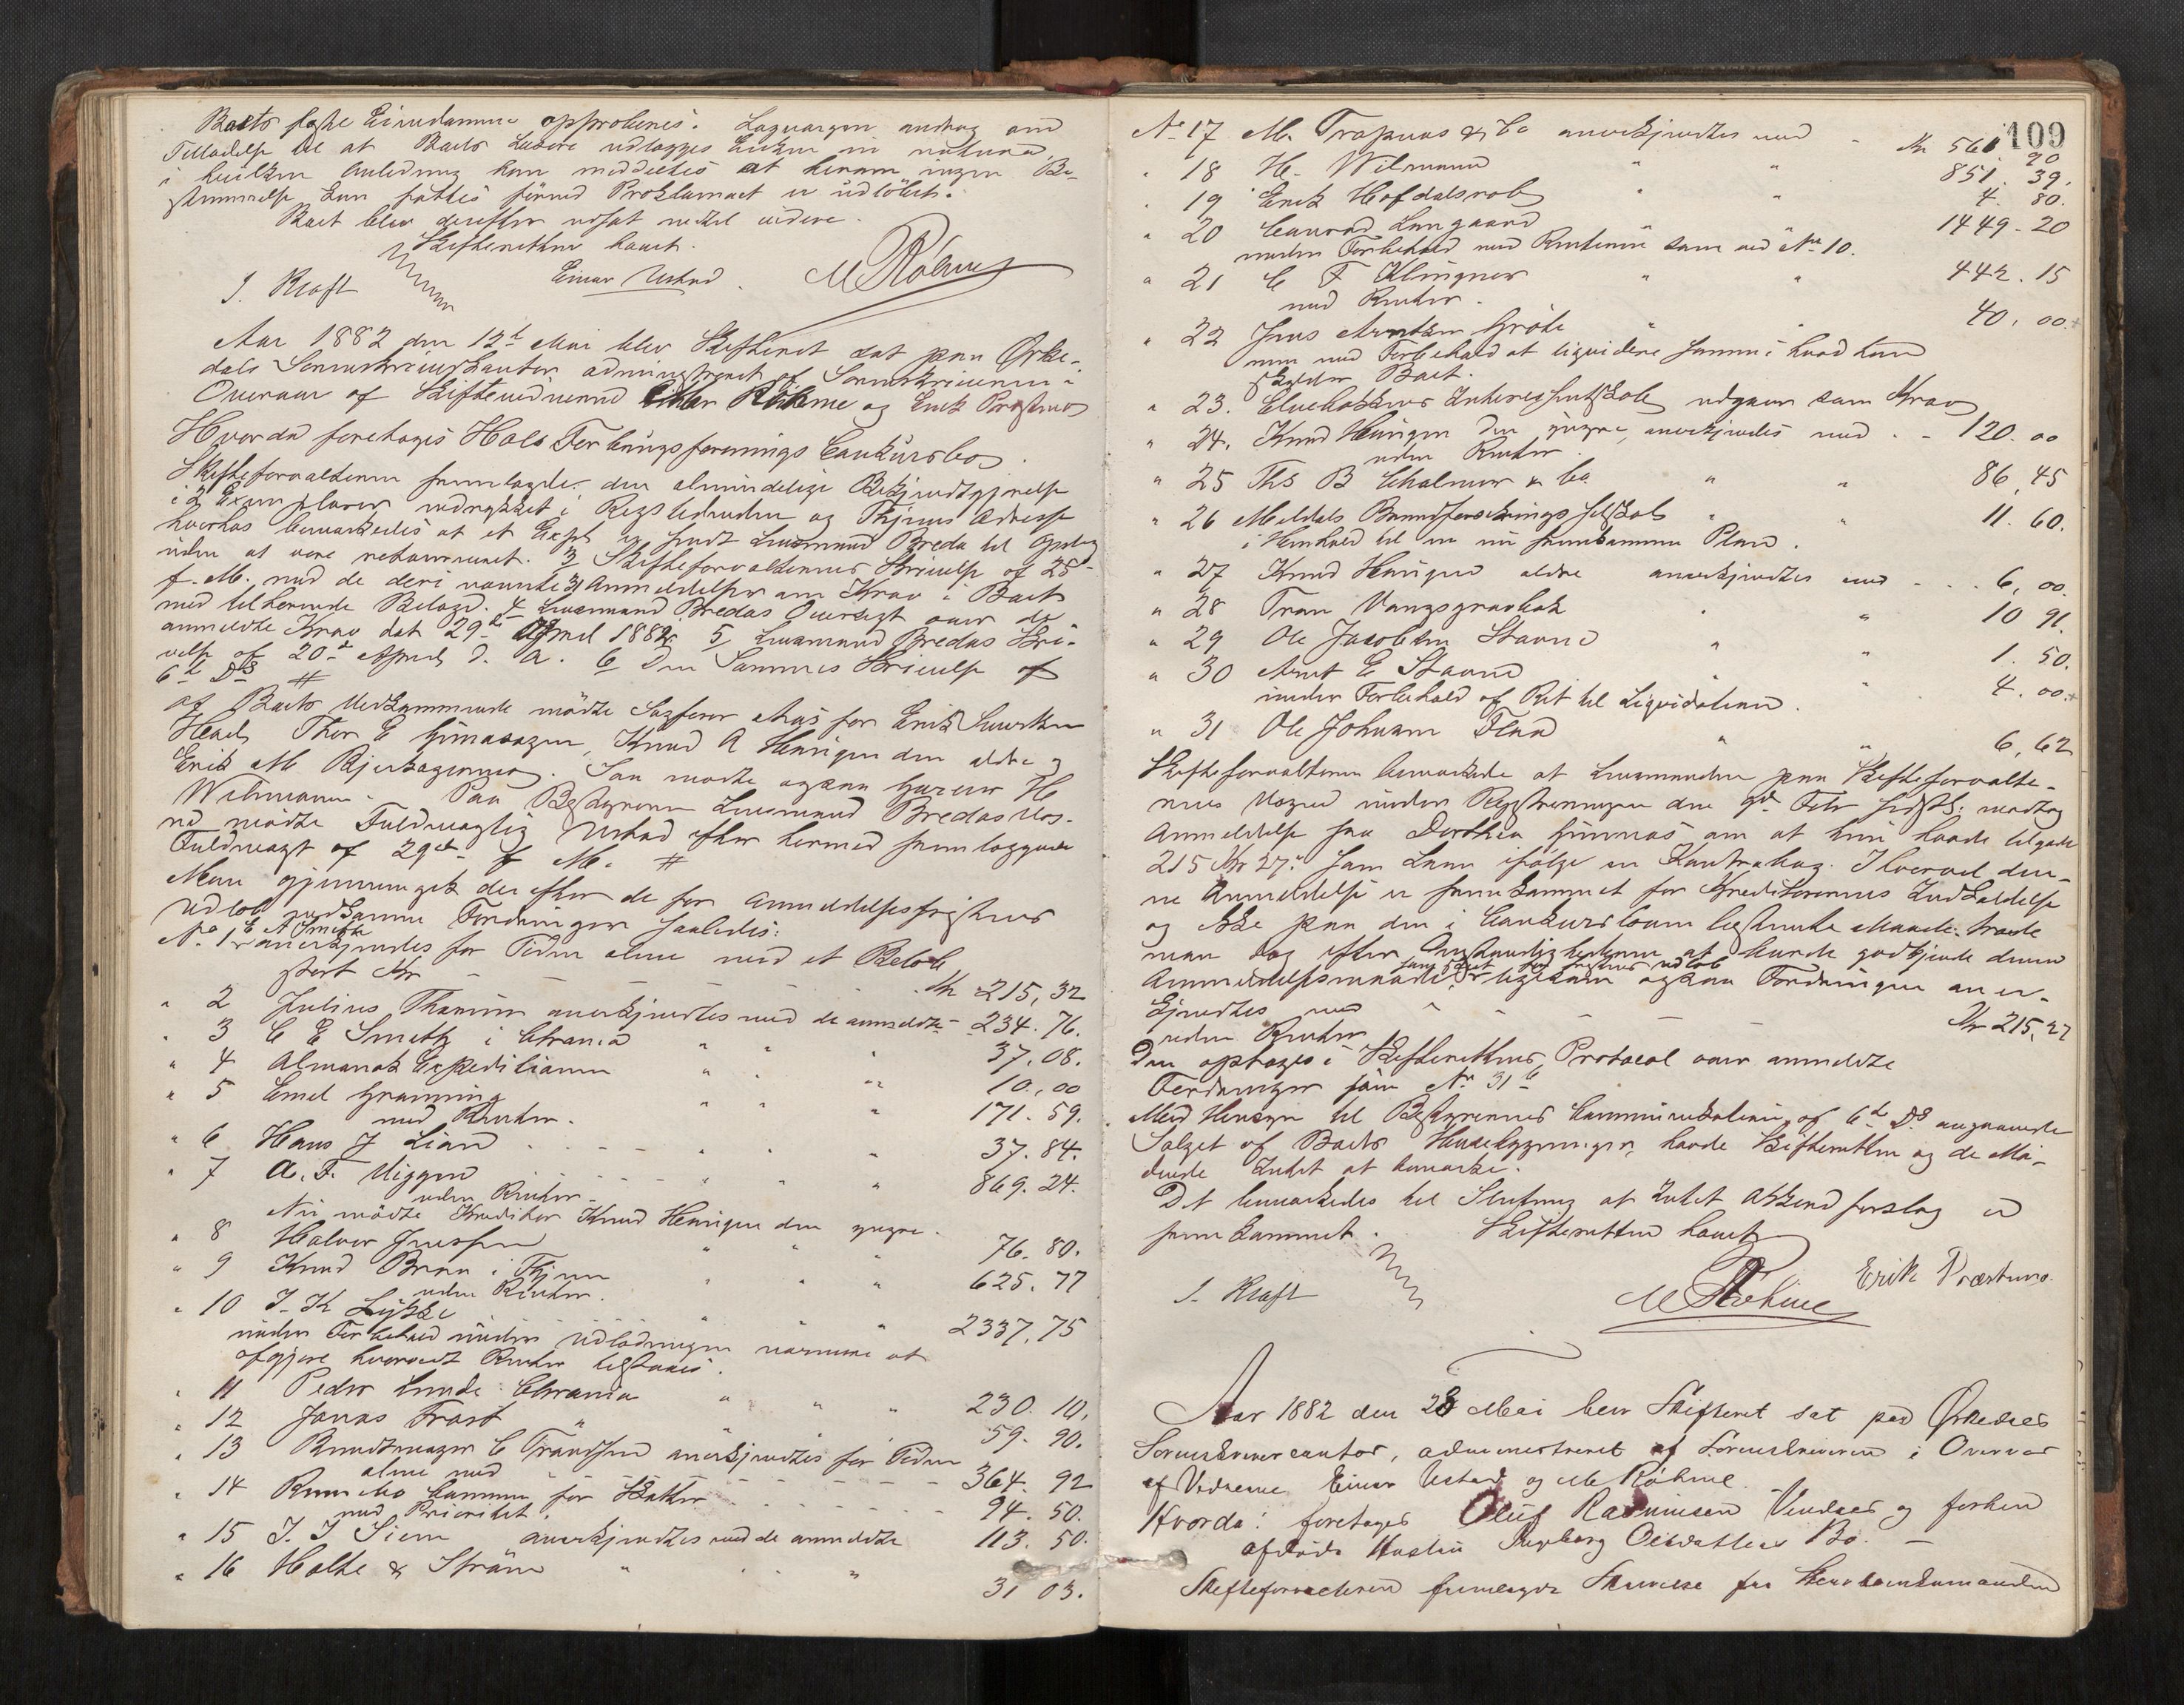 Boets faste Eiendomme approberes. Laquargen androg om
Tilladelse til at Boets Løsøre udlægges in natura
i hvilken Anledning ham meddeeltes at herom ingen Be-
stemmelse kan fattes førend Proklamaet er udløbet.
Boet blev derefter udsat indtil videre.
Skifteretten hævet.
J. Kraft Einar Ustad M Röhme
Aar 1882 den 12te Mai blev Skifteret sat paa Ørke-
dals Sorenskriverkontor administreret af Sorenskriveren i
Overvær af Skiftevidnerne Röhme og Erik Præstmo
Hvorda foretoges Hols Forbrugsforenings Conkursbo.
Skifteforvalteren fremlagde: den almindelige Bekjendtgjørelse
i 2 Exemplarer indrykket i Rigstidenden og Thjems Adresse
hvorhos bemærkedes at et Expl er sendt Lensmand Bredo til Opslag
uden at være retourneret. 3 Skifteforvalterens Skrivelse af 25
f. M. med de deri nævnte 31 Anmeldelser om Krav i Boet
med tilhørende Bilage. 4 Lensmand Bredas Oversigt over de
anmeldte Krav dat 29de April 1882. 5 Lensmand Bredas Skri-
velse af 20de April d. A. 6 Den Sammes Skrivelse af
6te Ds #
af Boets Vedkommende mødte Sagfører Aas for Erik Sivertsen
Heads, Thor E Grinasagen, Knud A Henrigsen den ældre og
Erik M Bjerkagernes. Saa mødte ogsaa H
Wilmann. Paa Bestyreren Lensmand Bredas Veg-
ne mødte Fuldmægtig Ustad efter hermed fremlagte
Fuldmagt af 29de f. M. #
Man gjennemgik derefter de for Anmeldelsesfristens
Udløb indkomne Fordringer saaledes:
No 1 anerkjendes for Tiden alene med et Beløb
stort Kr - - - Kr 215,32
" 2 Julius Thanim anerkjendtes med de anmeldte - 234. 76.
" 3 C E Smith i Chrania " " " 37. 08.
" 4 Almanak Expeditionen " " " 10,00
" 5 Emil Gramming " " " 171. 59.
med Renter.
" 6 Hans J Lian - - - " " " 37. 84.
" 7 A. F. Uiggen - - - " " " 869. 24.
uden Renter.
Nu mødte Kreditor Knud Henrigsen den yngre.
" 8 Halvor Jensen " " " 76. 80.
" 9 Knud Bran i Thjem " " " 625. 77
uden Renter.
" 10 J. K Lykke " " " 2337. 75
under Forbehold under Udlodningen nærmere at
afgjøre hvorvidt Renter tilstaaes.
" 11 Peder Lunde Chrania " " " 230. 10.
" 12 Jonas Frost " 59. 90.
" 13 Brendtmager C Trondsen anerkjendtes for Tiden
alene med - - - 364. 92
" 14 Rennebo Commune for Skatter - - - 94. 50.
med Prioritet.
" 15 J. J Siem anerkjendtes med de anmeldte 113. 50.
" 16 Holte & Strøm " " " 31 03.
109
No 17 M. Trapnas & Co anerkjendtes med - Kr 561. 90
" 18 H. Wilmann " " 851. 39.
" 19 Erik Hofdalsrob " " 4. 80.
" 20 Conrad Langaard 1449. 20
under Forbehold med Renterne som ved No 10.
" 21 C F Klingner " " 442. 15
med Renter.
" 22 Jens Arntsen Gröte " " 40,00.
men med Forbehold at liquidere samme i hvad han
skylder Boet.
" 23. Interessentskab udgaar som Krav
" 24. Knud Henrigsen den yngre, anerkjendes med - - 120. 00
uden Renter.
" 25 Ths B Chalmer & Co " " 86,45
" 26 Meldals Brandforsikringsselskab " " 11. 60.
i Henhold til en nu fremkommen Plan.
" 27 Knud Henrigsen ældre anerkjendtes med - - - 6,00.
" 28 Tron Vangsgravbak " " 10 91.
" 29 Ole Jacobsen Stavne " " 1. 50.
" 30 Arnt E Stavne " 4. 00.
under Forbehold af Ret til Liquidation.
" 31 Ole Johnsen Flaa " " 6,62
Skifteforvalteren bemærkede at Lensmanden paa Skifteforvalte-
rens Vegne under Registreringen den 9de Febr sidstl. modtog
Anmeldelse fra Dorthea Grinnas om at hun havde tilgode
215 Kr 27 i Løn ifølge en Kontrabog. Ihvorvel den-
ne Anmeldelse er fremkommet før Kreditorernes Indkaldelse
og ikke paa den i Conkursloven bestemte Maade, troede
man dog efter Omstændighederne at kunne godkjende denne
Anmeldelsesmaade som skeet før Fristens Udløb, ligesom ogsaa Fordringen aner-
kjendtes med - - - - Kr 215,27
uden Renter.
Den optages i Skifterettens Protocol over anmeldte
Fordringer som No 31 b
Med Hensyn til Bestyrerens Communication af 6te Ds angaaende
Salget af Boets Husebygninger, havde Skifteretten og de Mø-
dende Intet at bemærke.
Det bemærkedes til Slutning at Intet Akkordforslag er
fremkommet. Skifteretten hævet
J. Kraft M Röhme Erik Præstmo.
Aar 1882 den 23 Mai blev Skifteret sat paa Ørkedals
Sorenskrivercontor, administreret af Sorenskriveren i Overvær
af Vidnerne Einar Ustad og M Röhme.
Hvorda: foretoges Oluf Rasmusen Vindaes og forhen
afdøde Hustru Ingeborg Olsdatters Bo. -
Skifteforvalteren fremlagde Skrivelse fra